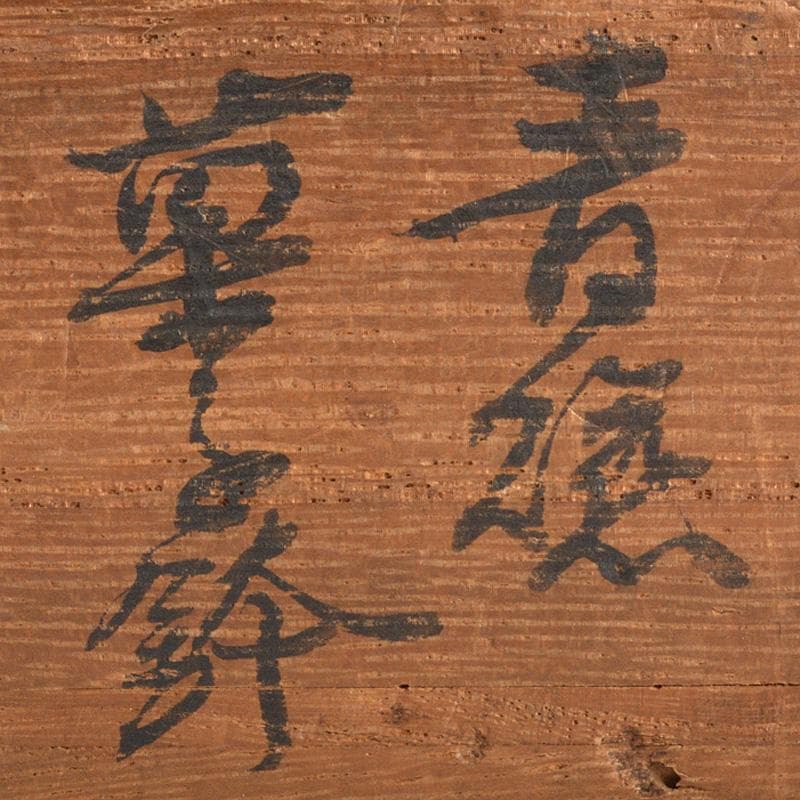 青
菓子鉢